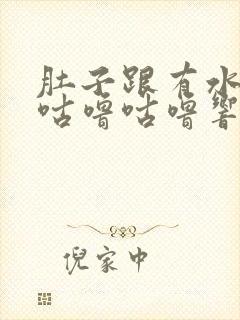 肚子跟有水
咕噜咕噜響
倪家中